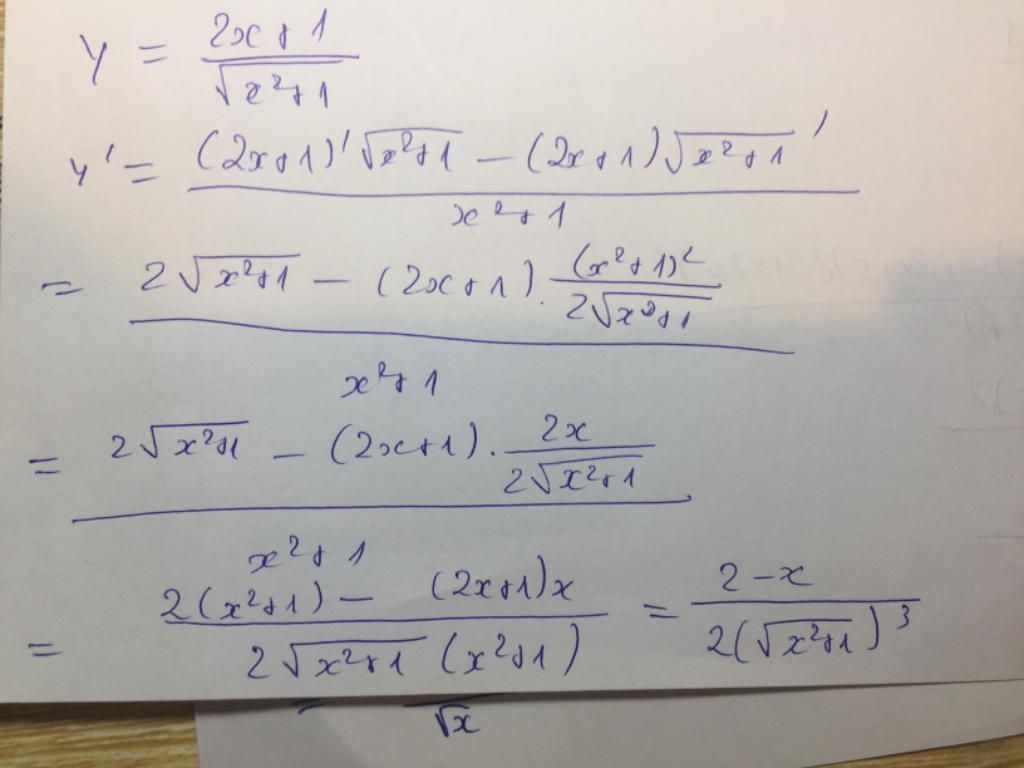 y = (2x+1)/√(x²+1)
y' = ((2x+1)'√(x²+1) − (2x+1)√(x²+1)')/(x²+1)
= (2√(x²+1) − (2x+1).(x²+1)'/(2√(x²+1)))/(x²+1)
= (2√(x²+1) − (2x+1).2x/(2√(x²+1)))/(x²+1)
= (2(x²+1) − (2x+1)x)/(2√(x²+1)(x²+1)) = (2−x)/(2(√(x²+1))³)
= /√x